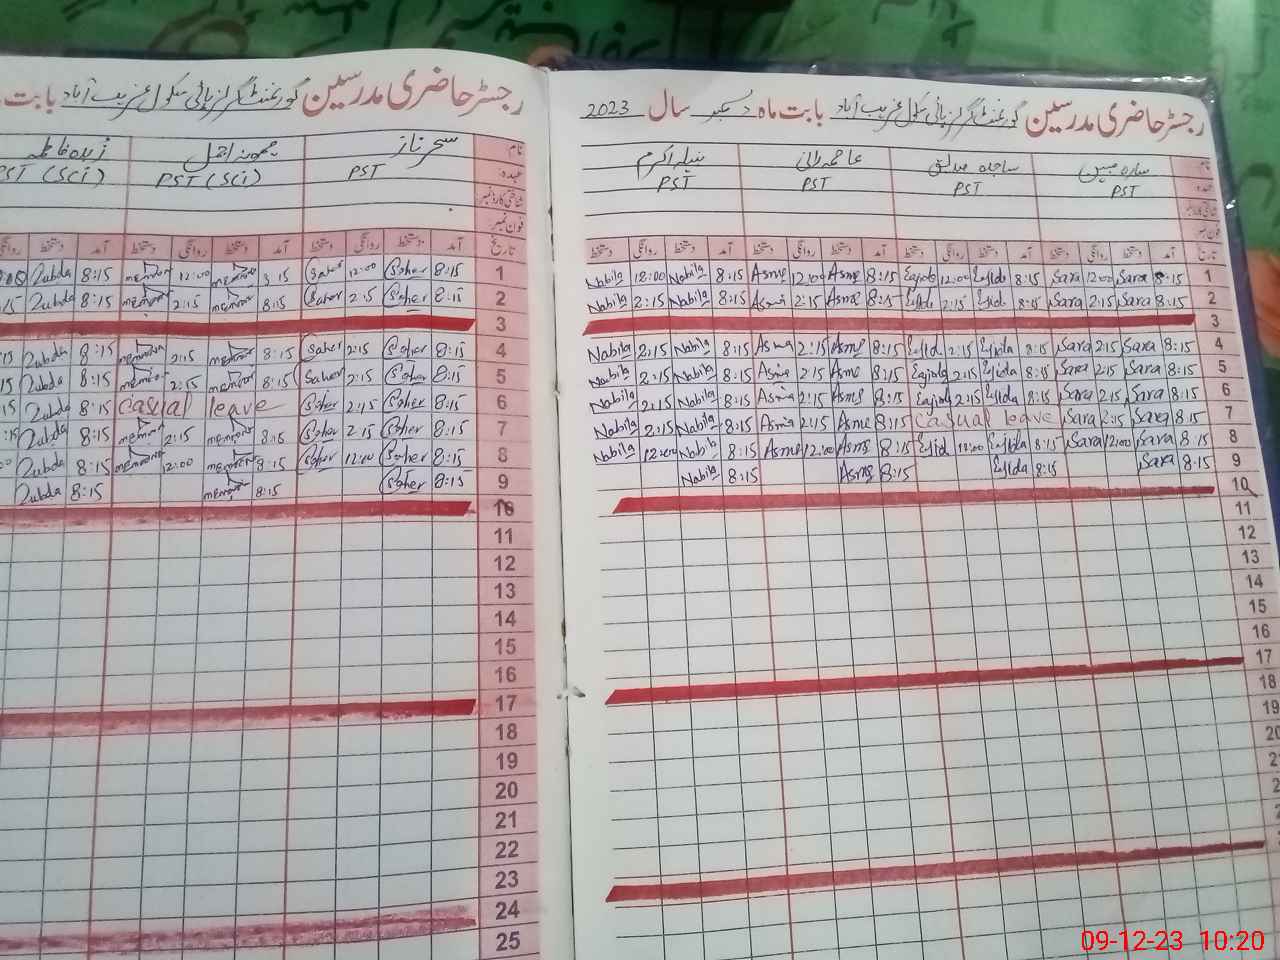 رجسٹر حاضری مدرسین گورنمنٹ گرلز ہائی سکول غریب آباد بابت ماہ دسمبر سال 2023
نام سارہ مبین ساجدہ صدیق عاصمہ رانی نبیلہ اکرم
عہدہ PST PST PST PST
شناختی کارڈ نمبر
فون نمبر
تاریخ آمد دستخط روانگی دستخط آمد دستخط روانگی دستخط آمد دستخط روانگی دستخط آمد دستخط روانگی دستخط
1 8:15 Sara 12:00 Sara 8:15 12:00 8:15 Asma 12:00 Asma 8:15 Nabila 12:00 Nabila
2 8:15 Sara 2:15 Sara 8:15 2:15 8:15 Asma 2:15 Asma 8:15 Nabila 2:15 Nabila
3
4 8:15 Sara 2:15 Sara 8:15 2:15 8:15 Asma 2:15 Asma 8:15 Nabila 2:15 Nabila
5 8:15 Sara 2:15 Sara 8:15 2:15 8:15 Asma 2:15 Asma 8:15 Nabila 2:15 Nabila
6 8:15 Sara 2:15 Sara 8:15 2:15 8:15 Asma 2:15 Asma 8:15 Nabila 2:15 Nabila
7 8:15 Sara 2:15 Sara Casual leave 8:15 Asma 2:15 Asma 8:15 Nabila 2:15 Nabila
8 8:15 Sara 12:00 Sara 8:15 12:00 8:15 Asma 12:00 Asma 8:15 Nabila 12:00 Nabila
9 8:15 Sara 8:15 8:15 Asma 8:15 Nabila
10
11
12
13
14
15
16
17
18
رجسٹر حاضری مدرسین گورنمنٹ گرلز ہائی سکول غریب آباد بابت
نام سحر ناز زبدہ فاطمہ
عہدہ PST PST (SCI) PST (SCI)
شناختی کارڈ نمبر
فون نمبر
تاریخ آمد دستخط روانگی دستخط آمد دستخط روانگی دستخط آمد دستخط روانگی
1 8:15 Saher 12:00 Saher 8:15 memona 12:00 memona 8:15 Zubda
2 8:15 Saher 2:15 Saher 8:15 memona 2:15 memona 8:15 Zubda
3
4 8:15 Saher 2:15 Saher 8:15 memona 2:15 memona 8:15 Zubda
5 8:15 Saher 2:15 Saher 8:15 memona 2:15 memona 8:15 Zubda
6 8:15 Saher 2:15 Saher Casual leave 8:15 Zubda
7 8:15 Saher 2:15 Saher 8:15 memona 2:15 memona 8:15 Zubda
8 8:15 Saher 12:00 Saher 8:15 memona 12:00 memona 8:15 Zubda
9 8:15 Saher 8:15 memona 8:15 Zubda
10
11
12
13
14
15
16
17
18
19
20
21
22
23
24
25
09-12-23 10:20